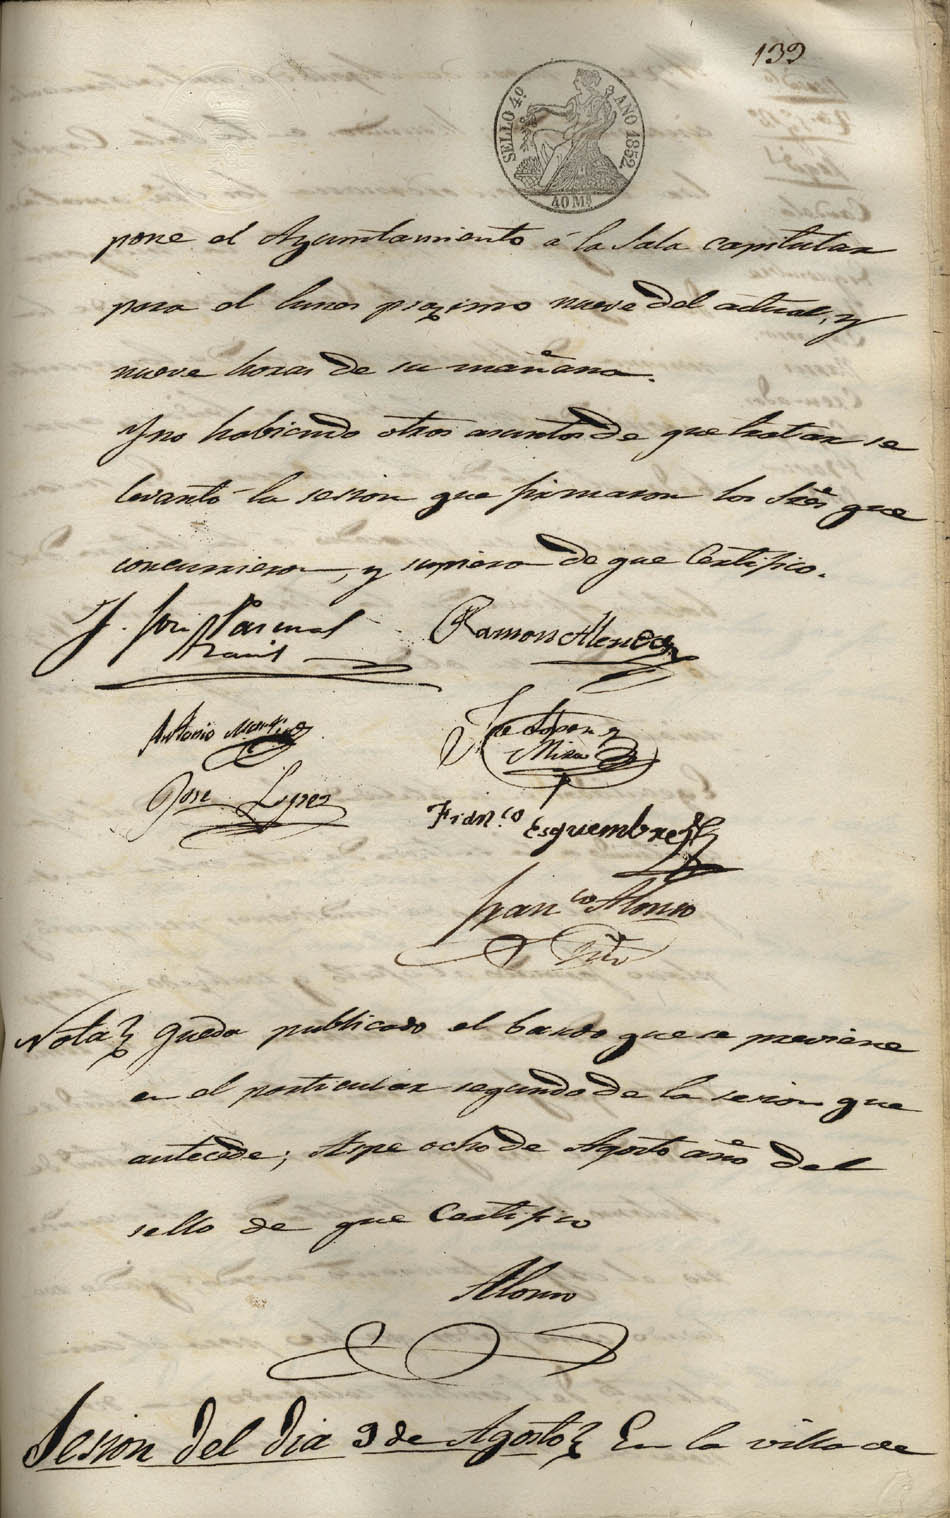 139
SELLO 4º AÑO 1852.
40 Ms
pone el Ayuntamiento á la Sala capitular
para el lunes proximo nueve del actual, y
nueve horas de su mañana.
Y no habiendo otros asuntos de que tratar se
levantó la sesion que firmaron los Sres que
concurrieron, y supieron de que Certifico.
J. José Pascual
Ramon Alenda
Antonio
Jose Lopez y
Mira
Jose Lopez
Franco Esquembre
Franco Alonso
Srio
Nota Queda publicado el bando que se previene
en el particular segundo de la sesion que
antecede; Aspe ocho de Agosto año del
sello de que Certifico
Alonso
Sesion del dia 9 de Agosto En la villa de